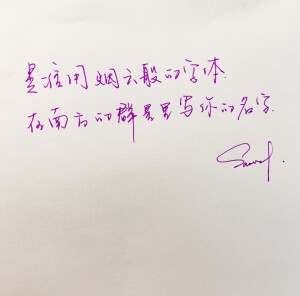 是谁用烟云般的字体
在南方的群星里写你的名字